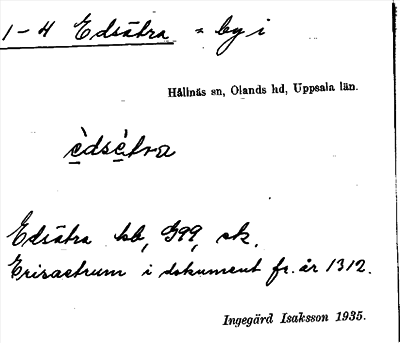 1-4 Edsätra = by i
Hållnäs sn, Olands hd, Uppsala län.
èdsètra
Edsätra kb, G99, sk.
Erisaetrum i dokument fr. år 1312.
Ingegärd Isaksson 1935.